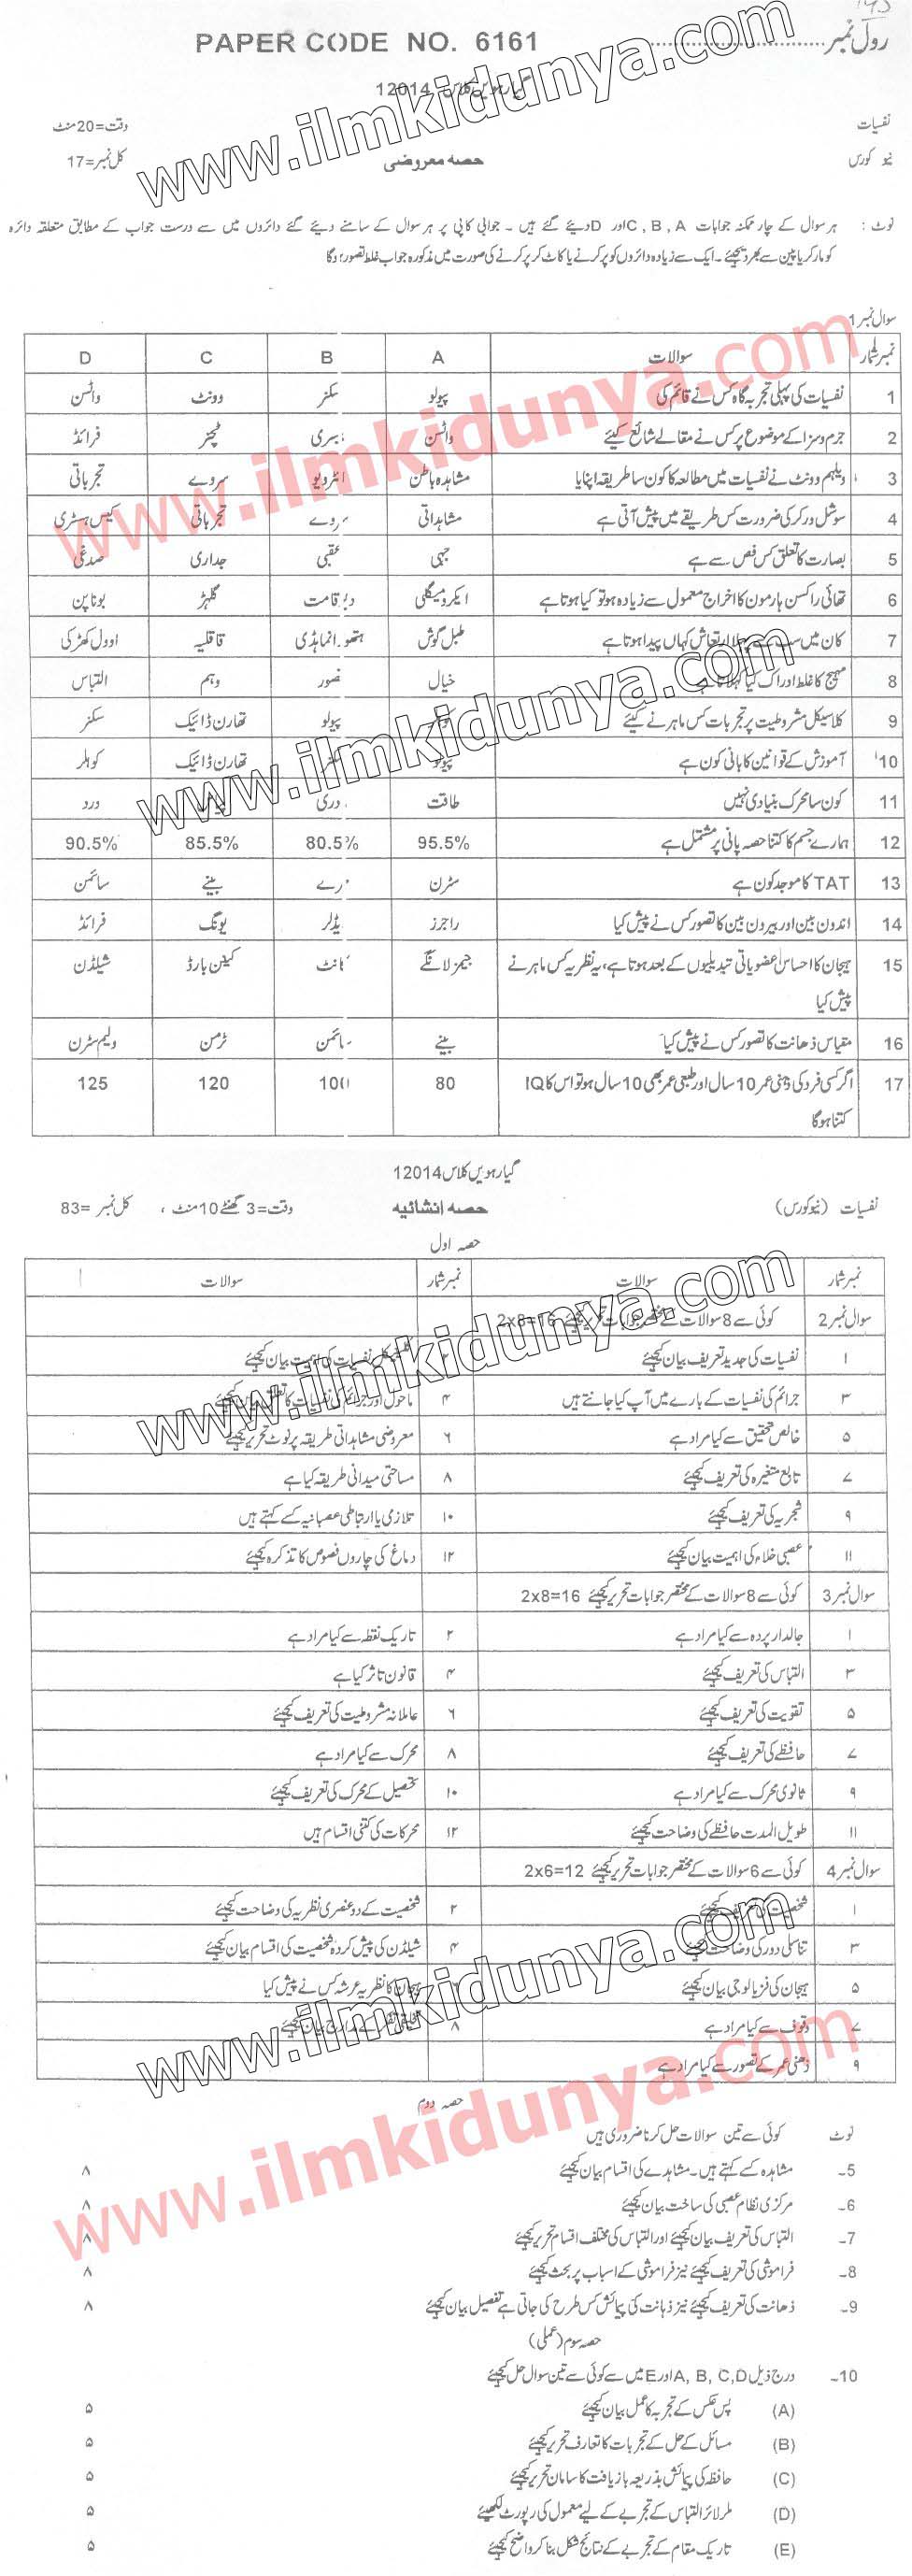 رول نمبر
PAPER CODE NO. 6161
گیارہویں کلاس 12014
نفسیات
وقت=20منٹ
نیو کورس
حصہ معروضی
کل نمبر=17
نوٹ : ہر سوال کے چار ممکنہ جوابات C , B , A اور D دیئے گئے ہیں ۔ جوابی کاپی پر ہر سوال کے سامنے دیئے گئے دائروں میں سے درست جواب کے مطابق متعلقہ دائرہ
کو مارکر یا پین سے بھر دیجئیے۔ ایک سے زیادہ دائروں کو پر کرنے یا کاٹ کر پر کرنے کی صورت میں مذکورہ جواب غلط تصور ہوگا
سوال نمبر 1
نمبر شمار سوالات A B C D
1 نفسیات کی پہلی تجربہ گاہ کس نے قائم کی پیولو سکنر وونٹ واٹسن
2 جرم و سزا کے موضوع پر کس نے مقالے شائع کیئے واٹسن ٹچنر فرائڈ
3 ویلہم وونٹ نے نفسیات میں مطالعہ کا کون سا طریقہ اپنایا مشاہدہ باطن انٹرویو سروے تجرباتی
4 سوشل ورکر کی ضرورت کس طریقے میں پیش آتی ہے مشاہداتی سروے تجرباتی کیس ہسٹری
5 بصارت کا تعلق کس فص سے ہے جبہی عقبی جداری صدغی
6 تھائی راکسن ہارمون کا اخراج معمول سے زیادہ ہو تو کیا ہوتا ہے ایکرومیگلی گلہڑ بوناپن
7 کان میں سب سے پہلا ارتعاش کہاں پیدا ہوتا ہے طبل گوش قاقلیہ اوول کھڑکی
8 مہیج کا غلط ادراک کیا کہلاتا ہے خیال تصور وہم التباس
9 کلاسیکل مشروطیت پر تجربات کس ماہر نے کیئے پیولو تھارن ڈائیک سکنر
10 آموزش کے قوانین کا بانی کون ہے پیولو سکنر تھارن ڈائیک کوہلر
11 کون سا محرک بنیادی نہیں طاقت پیاس درد
12 ہمارے جسم کا کتنا حصہ پانی پر مشتمل ہے 95.5% 80.5% 85.5% 90.5%
13 TAT کا موجد کون ہے سٹرن مرے بینے سائمن
14 اندرون بین اور بیرون بین کا تصور کس نے پیش کیا راجرز ایڈلر یونگ فرائڈ
15 ہیجان کا احساس عضویاتی تبدیلیوں کے بعد ہوتا ہے، یہ نظریہ کس ماہر نے جیمز لانگے کینن بارڈ شیلڈن
پیش کیا
16 مقیاس ذہانت کا تصور کس نے پیش کیا بینے سائمن ٹرمن ولیم سٹرن
17 اگر کسی فرد کی ذہنی عمر 10 سال اور طبعی عمر بھی 10 سال ہو تو اس کا IQ 80 100 120 125
کتنا ہوگا
گیارہویں کلاس 12014
نفسیات (نیو کورس) حصہ انشائیہ وقت=3 گھنٹے 10 منٹ ، کل نمبر =83
حصہ اول
نمبر شمار سوالات نمبر شمار سوالات
سوال نمبر 2 کوئی سے 8 سوالات کے مختصر جوابات تحریر کیجئیے 2x8=16
۱ نفسیات کی جدید تعریف بیان کیجئیے ۲ نفسیات کی اہمیت بیان کیجئیے
۳ جرائم کی نفسیات کے بارے میں آپ کیا جانتے ہیں ۴ ماحول اور جرائم کی نفسیات کا تعلق بیان کیجئیے
۵ خالص تحقیق سے کیا مراد ہے ۶ معروضی مشاہداتی طریقہ پر نوٹ تحریر کیجئیے
۷ تابع متغیرہ کی تعریف کیجئیے ۸ مساحتی میدانی طریقہ کیا ہے
۹ شجریہ کی تعریف کیجئیے ۱۰ تلازمی یا ارتباطی عصبانیہ کسے کہتے ہیں
۱۱ عصبی خلاء کی اہمیت بیان کیجئیے ۱۲ دماغ کی چاروں فصوص کا تذکرہ کیجئیے
سوال نمبر 3 کوئی سے 8 سوالات کے مختصر جوابات تحریر کیجئیے 2x8=16
۱ جالدار پردہ سے کیا مراد ہے ۲ تاریک نقطہ سے کیا مراد ہے
۳ التباس کی تعریف کیجئیے ۴ قانون تاثر کیا ہے
۵ تقویت کی تعریف کیجئیے ۶ عاملانہ مشروطیت کی تعریف کیجئیے
۷ حافظے کی تعریف کیجئیے ۸ محرک سے کیا مراد ہے
۹ ثانوی محرک سے کیا مراد ہے ۱۰ تحصیل کے محرک کی تعریف کیجئیے
۱۱ طویل المدت حافظے کی وضاحت کیجئیے ۱۲ محرکات کی کتنی اقسام ہیں
سوال نمبر 4 کوئی سے 6 سوالات کے مختصر جوابات تحریر کیجئیے 2x6=12
۱ شخصیت کی تعریف کیجئیے ۲ شخصیت کے دو عنصری نظریہ کی وضاحت کیجئیے
۳ تناسلی دور کی وضاحت کیجئیے ۴ شیلڈن کی پیش کردہ شخصیت کی اقسام بیان کیجئیے
۵ ہیجان کی فزیالوجی بیان کیجئیے ہیجان کا نظریہ عرشہ کس نے پیش کیا
۷ وقوف سے کیا مراد ہے ۸ تخلیقی تفکر کے مدارج بیان کیجئیے
۹ ذہنی عمر کے تصور سے کیا مراد ہے
حصہ دوم
نوٹ کوئی سے تین سوالات حل کرنا ضروری ہیں
5۔ مشاہدہ کسے کہتے ہیں۔ مشاہدے کی اقسام بیان کیجئیے ۸
6۔ مرکزی نظام عصبی کی ساخت بیان کیجئیے ۸
7۔ التباس کی تعریف بیان کیجئیے اور التباس کی مختلف اقسام تحریر کیجئیے ۸
8۔ فراموشی کی تعریف کیجئیے نیز فراموشی کے اسباب پر بحث کیجئیے ۸
9۔ ذہانت کی تعریف کیجئیے نیز ذہانت کی پیمائش کس طرح کی جاتی ہے تفصیل بیان کیجئیے ۸
حصہ سوم (عملی)
10۔ درج ذیل A, B, C,D اور E میں سے کوئی سے تین سوال حل کیجئیے
(A) پس عکس کے تجربہ کا عمل بیان کیجئیے ۵
(B) مسائل کے حل کے تجربات کا تعارف تحریر کیجئیے ۵
(C) حافظہ کی پیمائش بذریعہ بازیافت کا سامان تحریر کیجئیے ۵
(D) ملر لائر التباس کے تجربے کے لیے معمول کی رپورٹ لکھیئے ۵
(E) تاریک مقام کے تجربے کے نتائج شکل بنا کر واضح کیجئیے ۵
www.ilmkidunya.com
www.ilmkidunya.com
www.ilmkidunya.com
www.ilmkidunya.com
www.ilmkidunya.com
www.ilmkidunya.com